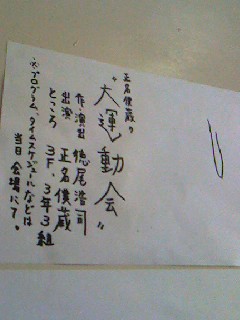 正名僕蔵の
“大運動会”
作・演出 徳尾浩司
出演 正名僕蔵
ところ 3F、3年3組
※プログラム、タイムスケジュールなどは
当日会場にて。